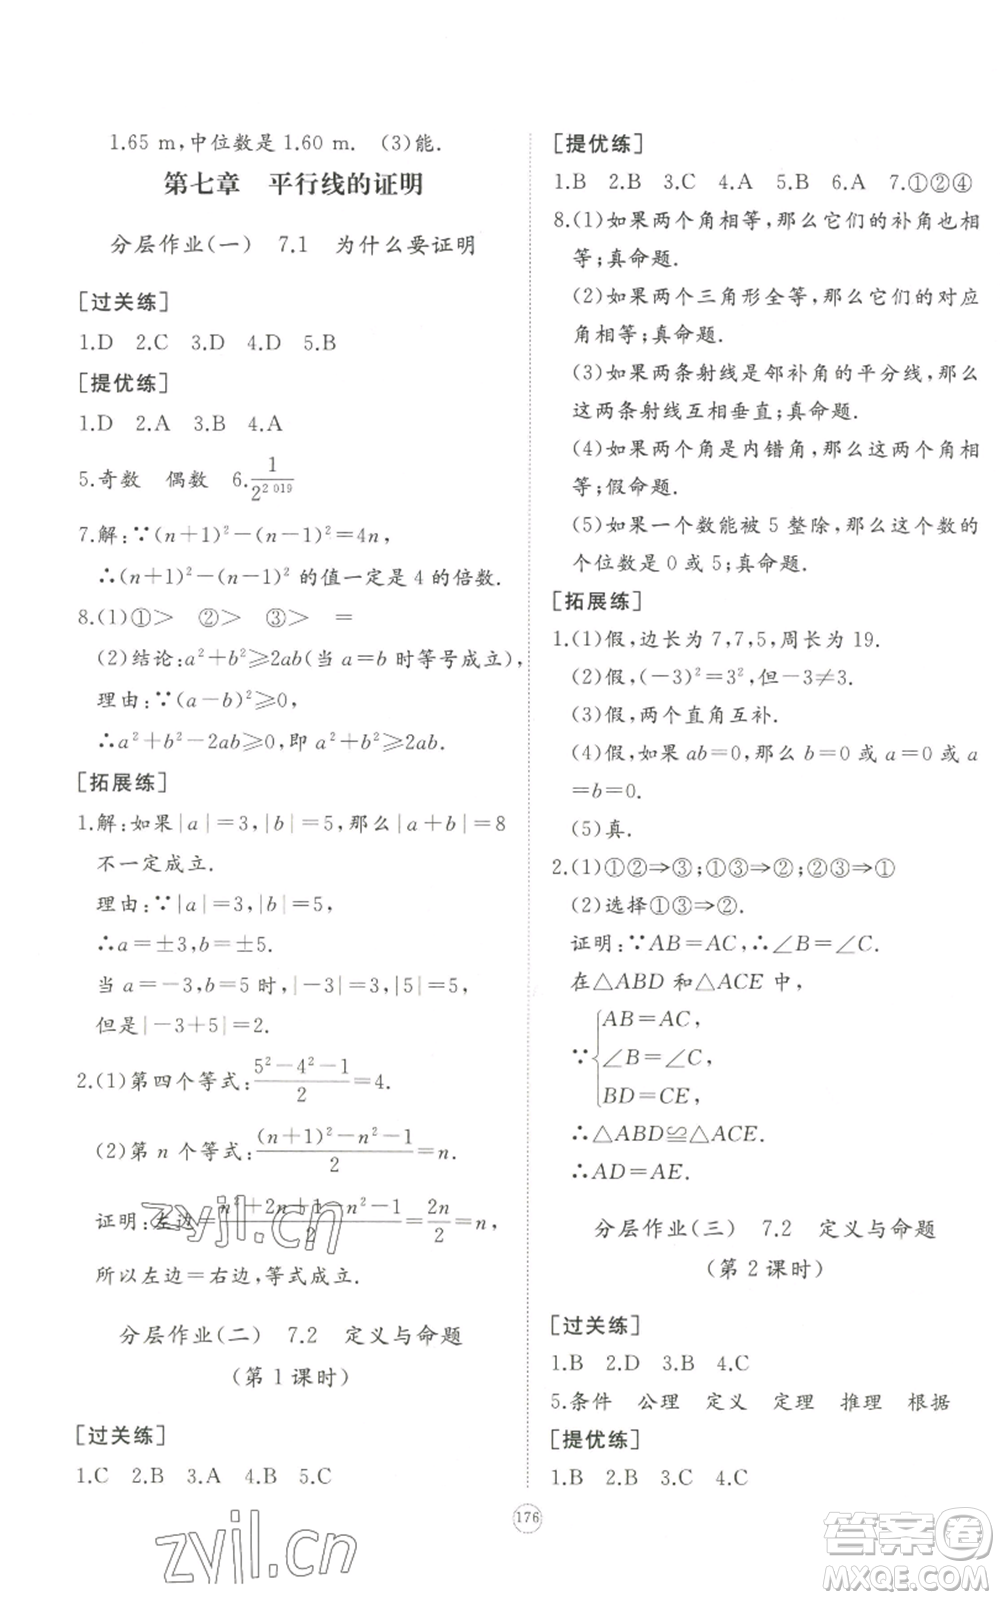 1.65 m,中位数是1.60 m. (3)能.
第七章 平行线的证明
分层作业(一) 7.1 为什么要证明
[过关练]
1.D 2.C 3.D 4.D 5.B
[提优练]
1.D 2.A 3.B 4.A
5.奇数 偶数 6.1/2^{2 019}
7.解:∵(n+1)²-(n-1)²=4n,
∴(n+1)²-(n-1)² 的值一定是 4 的倍数.
8.(1)①> ②> ③> =
(2)结论:a²+b²≥2ab(当 a=b 时等号成立),
理由:∵(a-b)²≥0,
∴a²+b²-2ab≥0,即 a²+b²≥2ab.
[拓展练]
1.解:如果|a|=3,|b|=5,那么|a+b|=8
不一定成立.
理由:∵|a|=3,|b|=5,
∴a=±3,b=±5.
当 a=-3,b=5 时,|-3|=3,|5|=5,
但是|-3+5|=2.
2.(1)第四个等式:(5²-4²-1)/2=4.
(2)第 n 个等式:((n+1)²-n²-1)/2=n.
证明:左边=(n²+2n+1-n²-1)/2=2n/2=n,
所以左边=右边,等式成立.
分层作业(二) 7.2 定义与命题
(第 1 课时)
[过关练]
1.C 2.B 3.A 4.B 5.C
[提优练]
1.B 2.B 3.C 4.A 5.B 6.A 7.①②④
8.(1)如果两个角相等,那么它们的补角也相
等;真命题.
(2)如果两个三角形全等,那么它们的对应
角相等;真命题.
(3)如果两条射线是邻补角的平分线,那么
这两条射线互相垂直;真命题.
(4)如果两个角是内错角,那么这两个角相
等;假命题.
(5)如果一个数能被 5 整除,那么这个数的
个位数是 0 或 5;真命题.
[拓展练]
1.(1)假,边长为 7,7,5,周长为 19.
(2)假,(-3)²=3²,但-3≠3.
(3)假,两个直角互补.
(4)假,如果 ab=0,那么 b=0 或 a=0 或 a
=b=0.
(5)真.
2.(1)①②⇒③;①③⇒②;②③⇒①
(2)选择①③⇒②.
证明:∵AB=AC,∴∠B=∠C.
在△ABD 和△ACE 中,
AB=AC,
∵{∠B=∠C,
BD=CE,
∴△ABD≌△ACE.
∴AD=AE.
分层作业(三) 7.2 定义与命题
(第 2 课时)
[过关练]
1.B 2.D 3.B 4.C
5.条件 公理 定义 定理 推理 根据
[提优练]
1.B 2.B 3.C 4.C
176
zyjl.cn
zyjl.cn
答案圈
MXQE.COM